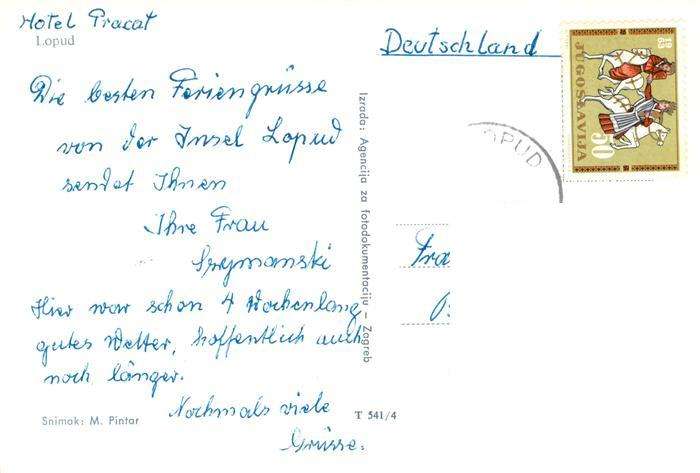 Hotel Pracat
Lopud
Die besten Feriengrüsse
von der Insel Lopud
sendet Ihnen
Ihre Frau
Szymanski
Hier war schon 4 Wochenlang
gutes Wetter, hoffentlich auch
noch länger.
Nochmals viele
Grüsse.
Snimak: M. Pintar
T 541/4
Izrada: Agencija za fotodokumentaciju – Zagreb
Deutschland
1963
JUGOSLAVIJA
50
LOPUD